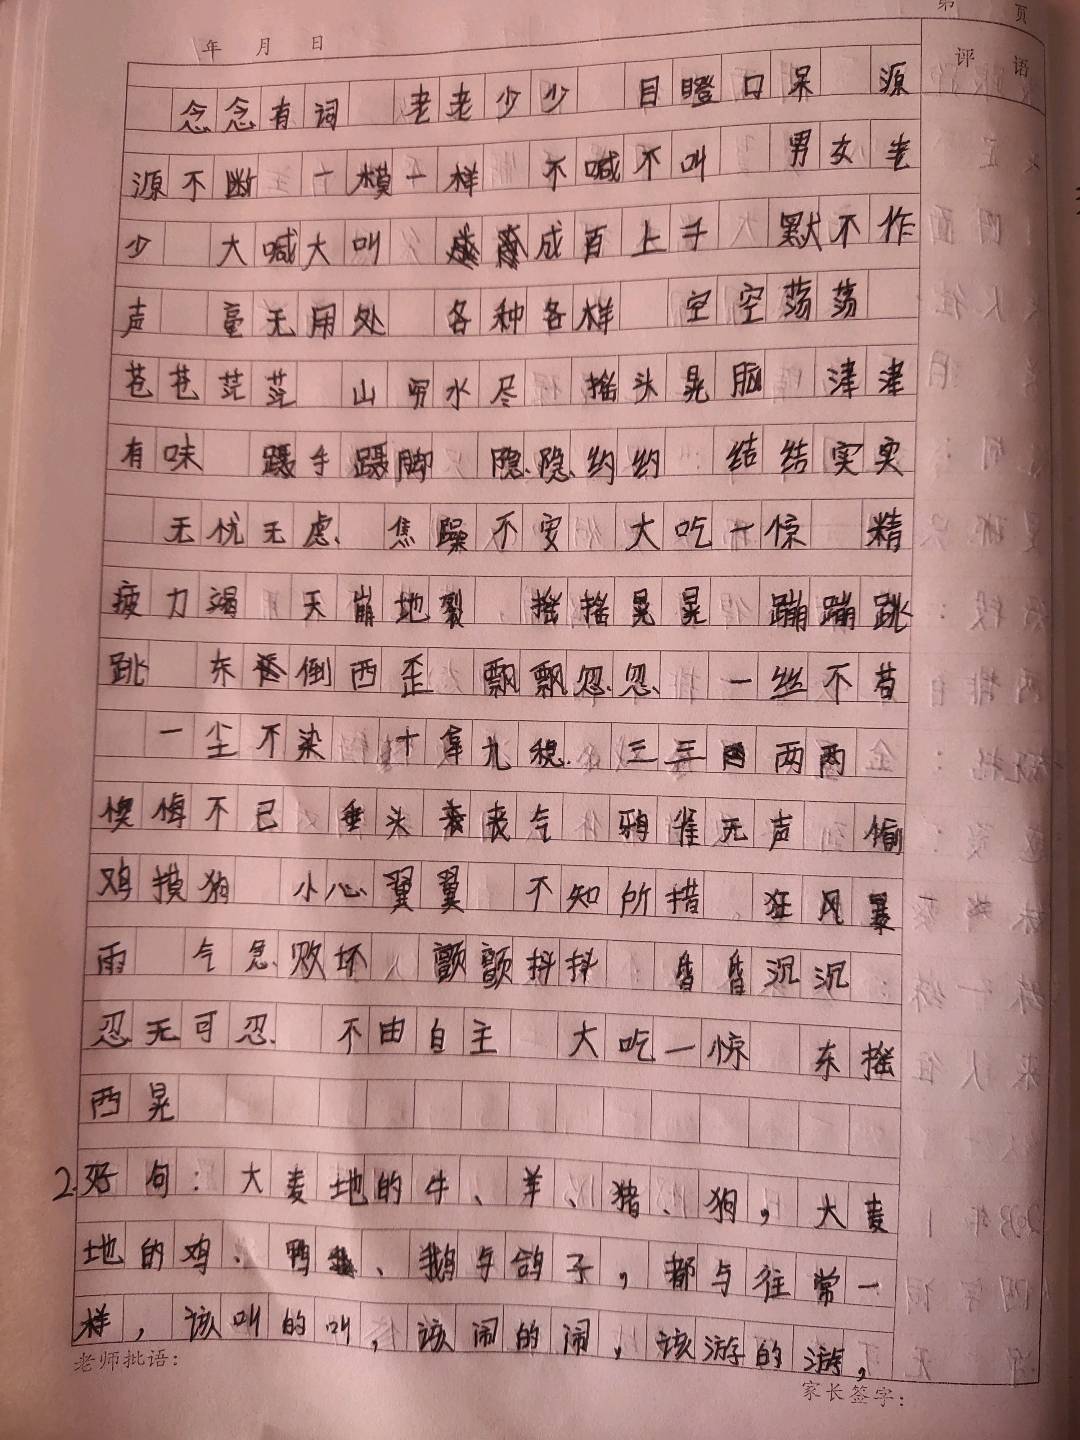 第 页
年 月 日
评 语
念念有词 老老少少 目瞪口呆 源
源不断 一模一样 不喊不叫 男女老
少 大喊大叫 成百上千 默不作
声 毫无用处 各种各样 空空荡荡
苍苍茫茫 山穷水尽 摇头晃脑 津津
有味 蹑手蹑脚 隐隐约约 结结实实
无忧无虑 焦躁不安 大吃一惊 精
疲力竭 天崩地裂 摇摇晃晃 蹦蹦跳
跳 东倒西歪 飘飘忽忽 一丝不苟
一尘不染 十拿九稳 三三两两
懊悔不已 垂头丧气 鸦雀无声 偷
鸡摸狗 小心翼翼 不知所措 狂风暴
雨 气急败坏 颤颤抖抖 昏昏沉沉
忍无可忍 不由自主 大吃一惊 东摇
西晃
2.好句：大麦地的牛、羊、猪、狗，大麦
地的鸡、鸭、鹅与鸽子，都与往常一
样，该叫的叫，该闹的闹，该游的游，
老师批语：
家长签字：